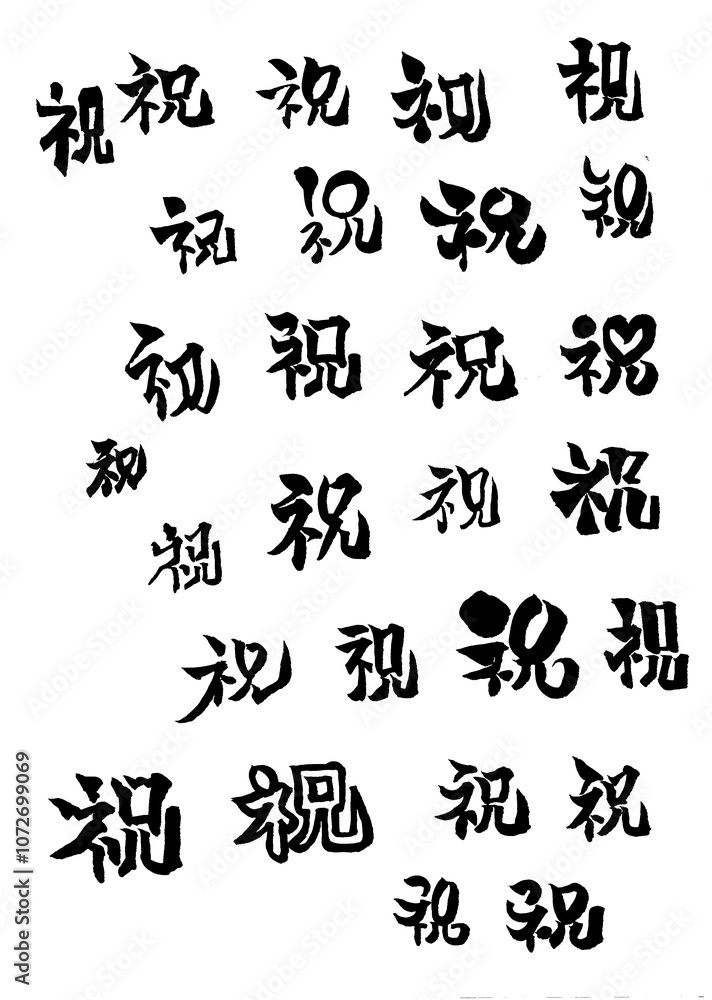 祝 祝 祝 祝 祝
祝 祝 祝 祝
祝 祝 祝 祝
祝 祝 祝 祝
祝
祝 祝 祝 祝
祝 祝 祝 祝
祝 祝
Adobe Stock | #1072699069